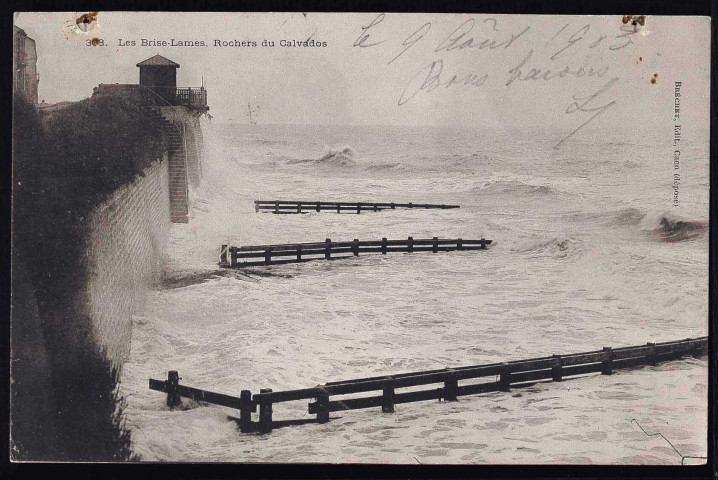 308. Les Brise-Lames. Rochers du Calvados
le 9 Août 1903
Bons baisers
Ly
BRÉCHET, Edit., Caen (déposé)